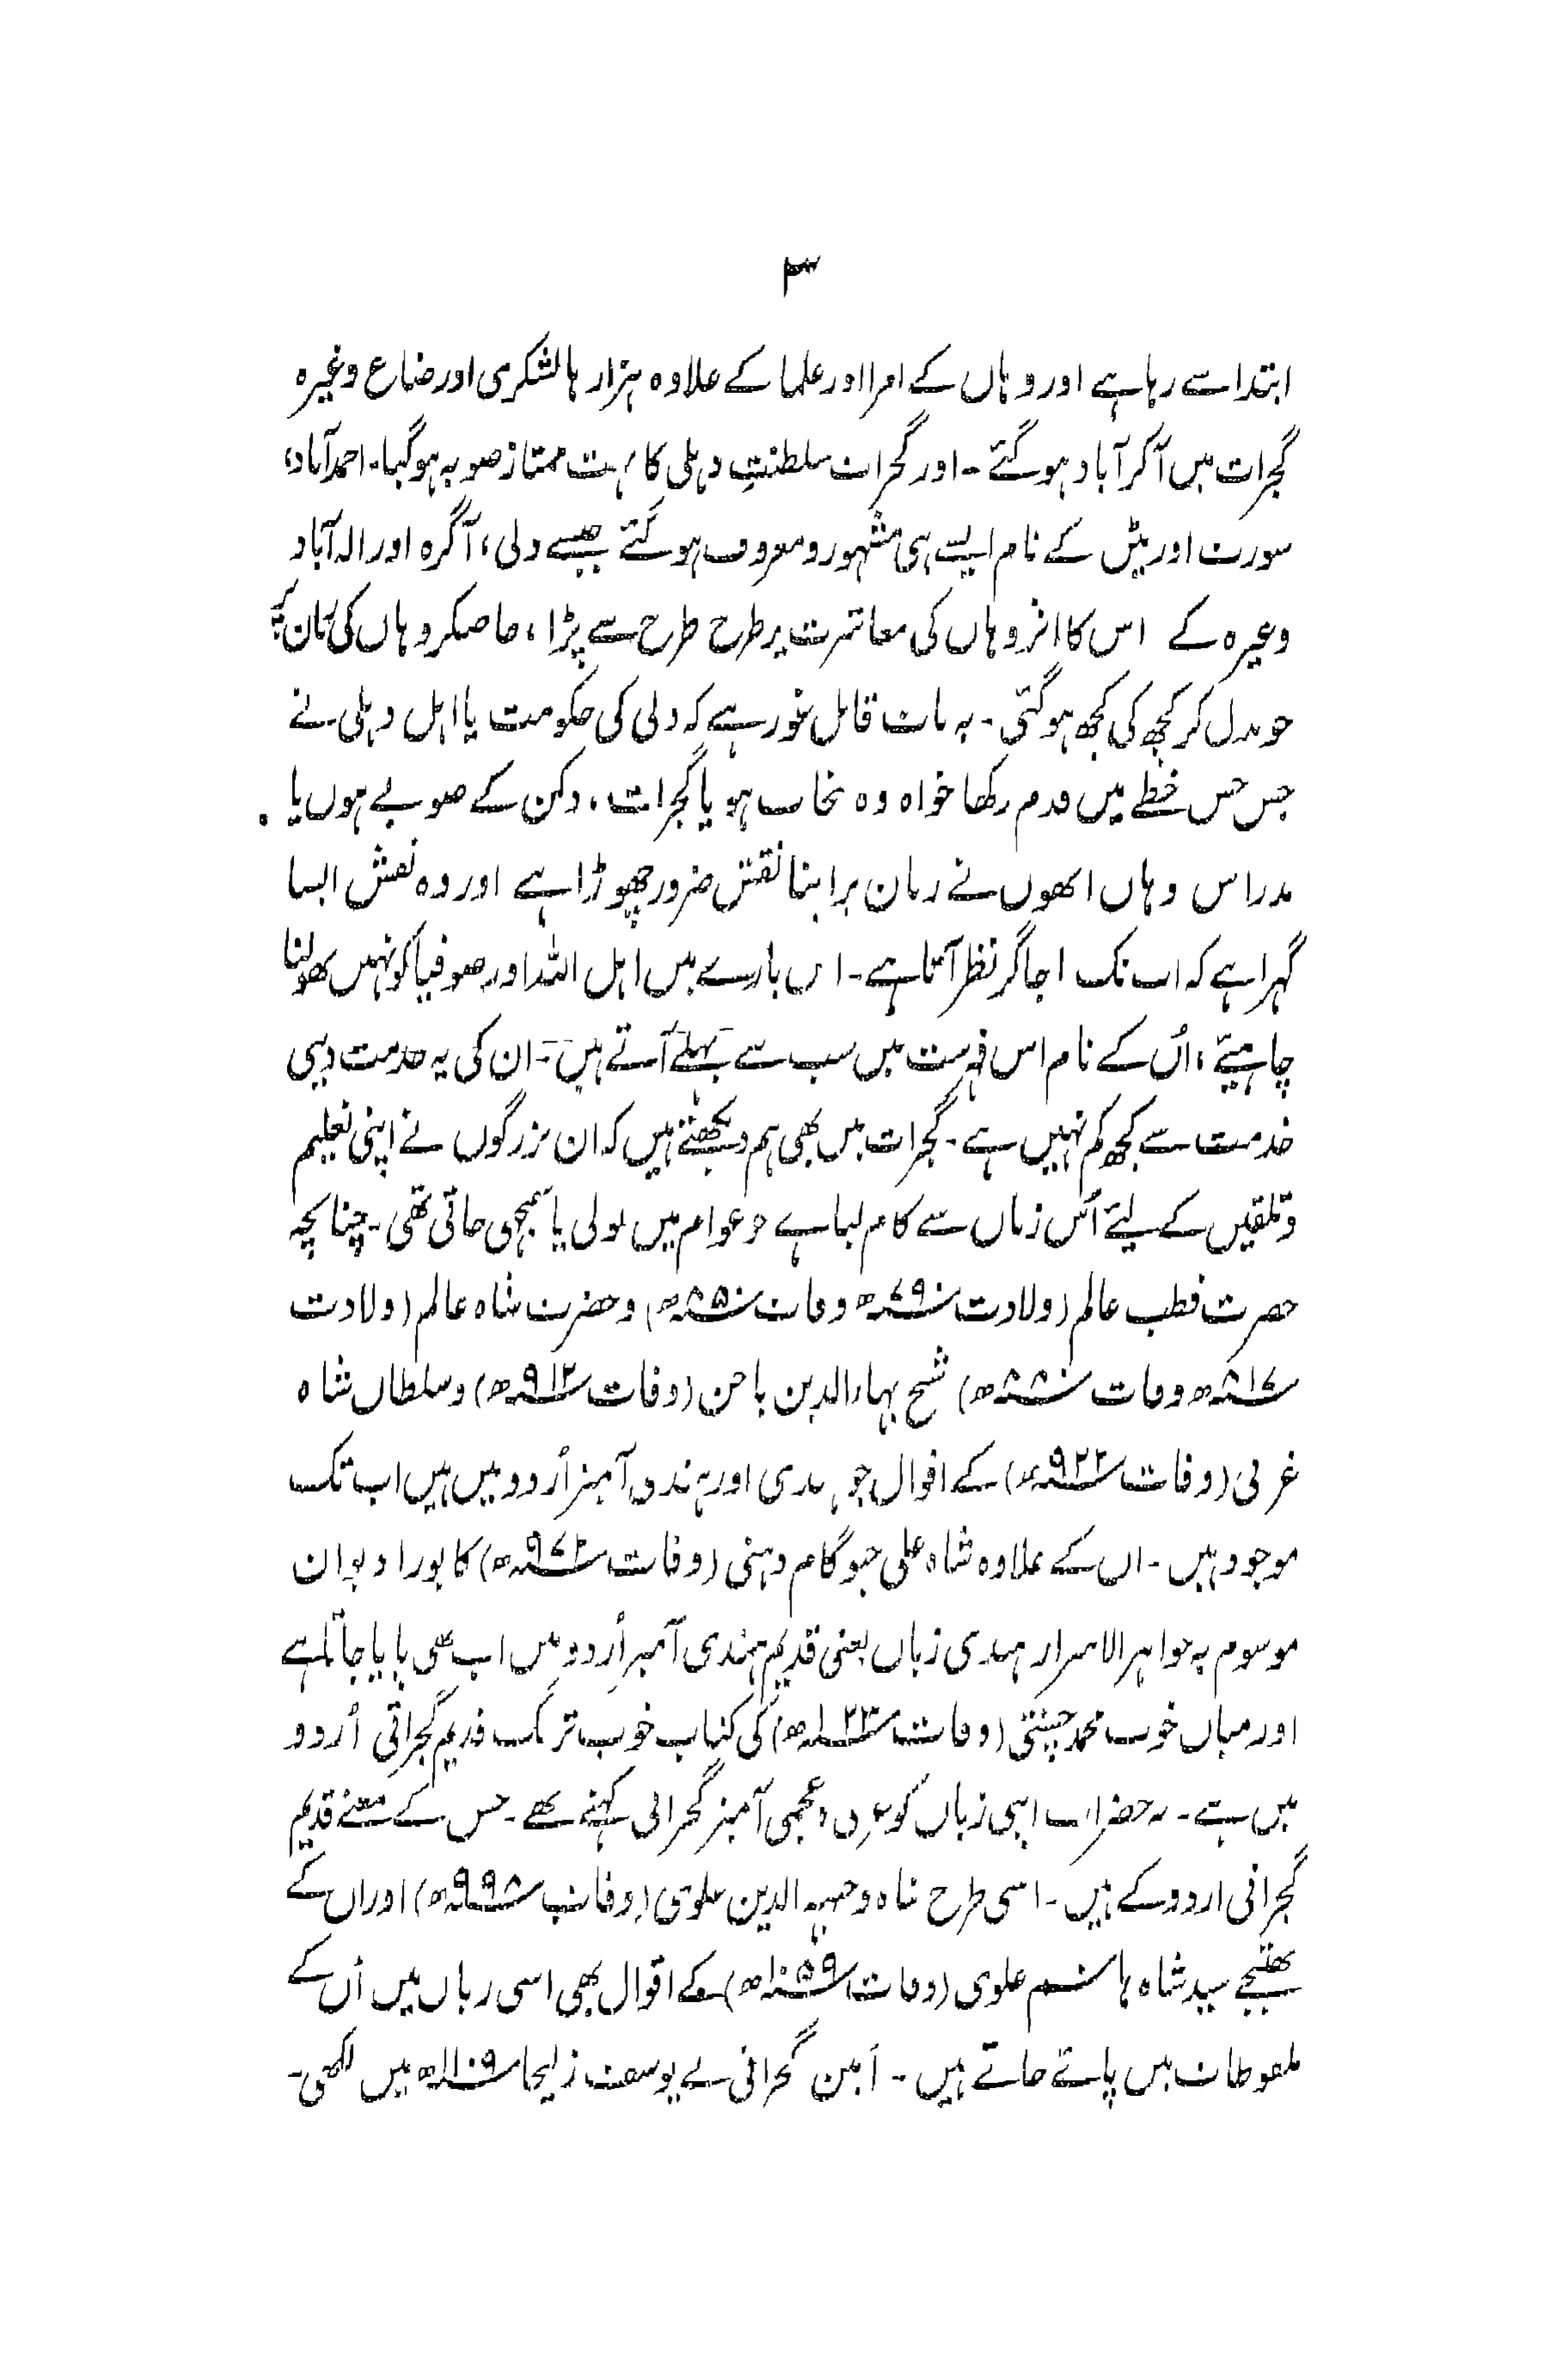 ۳
ابتدا سے رہا ہے اور وہاں کے امرا اور علما کے علاوہ ہزارہا لشکری اور صناع وغیرہ
گجرات میں آکر آباد ہو گئے ۔ اور گجرات سلطنتِ دہلی کا بہت ممتاز صوبہ ہو گیا۔ احمدآباد،
سورت اور پٹن کے نام ایسے ہی مشہور و معروف ہو گئے جیسے دلی، آگرہ اور الہ آباد
وغیرہ کے اس کا اثر وہاں کی معاشرت پر طرح طرح سے پڑا، خاصکر وہاں کی زبان پر
جو بدل کر کچھ کی کچھ ہو گئی ۔ یہ بات قابل غور ہے کہ دلی کی حکومت یا اہل دہلی نے
جس جس خطے میں قدم رکھا خواہ وہ پنجاب ہو یا گجرات، دکن کے صوبے ہوں یا
مدراس وہاں انھوں نے زبان پر اپنا نقش ضرور چھوڑا ہے اور وہ نقش ایسا
گہرا ہے کہ اب تک اجاگر نظر آتا ہے۔ اس بارے میں اہل اللہ اور صوفیا کو نہیں بھولنا
چاہیئے، اُن کے نام اس فہرست میں سب سے پہلے آتے ہیں ۔ ان کی یہ خدمت دینی
خدمت سے کچھ کم نہیں ہے ۔ گجرات میں بھی ہم دیکھتے ہیں کہ ان بزرگوں نے اپنی تعلیم
و تلقین کے لیئے اُس زبان سے کام لیا ہے جو عوام میں بولی یا سمجھی جاتی تھی ۔ چنانچہ
حضرت قطب عالم (ولادت سنہ ۷۹۰ھ وفات سنہ ۸۵۰ھ) و حضرت شاہ عالم (ولادت
سنہ ۸۱۷ھ وفات سنہ ۸۸۰ھ) شیخ بہاءالدین باجن (وفات سنہ ۹۱۲ھ) و سلطان شاہ
غزنی (وفات سنہ ۹۲۲ھ) کے اقوال جو ہندی اور ہندی آمیز اُردو میں ہیں اب تک
موجود ہیں ۔ ان کے علاوہ شاہ علی جیو گام دہنی (وفات سنہ ۹۷۲ھ) کا پورا دیوان
موسوم بہ جواہر الاسرار ہندی زبان یعنی قدیم ہندی آمیز اُردو میں اب بھی پایا جاتا ہے
اور میاں خوب محمد چشتی (وفات سنہ ۱۰۲۳ھ) کی کتاب خوب ترنگ قدیم گجراتی اُردو
میں ہے ۔ یہ حضرات اپنی زبان کو عربی و عجمی آمیز گجراتی کہتے تھے ۔ جس کے معنے قدیم
گجراتی اردو کے ہیں ۔ اسی طرح شاہ وجیہہ الدین علوی (وفات سنہ ۹۹۸ھ) اور ان کے
بھتیجے سید شاہ ہاشم علوی (وفات سنہ ۱۰۵۹ھ) کے اقوال بھی اسی زبان میں اُن کے
ملفوظات میں پائے جاتے ہیں ۔ امین گجراتی نے یوسف زلیخا سنہ ۱۱۰۹ھ میں لکھی ۔